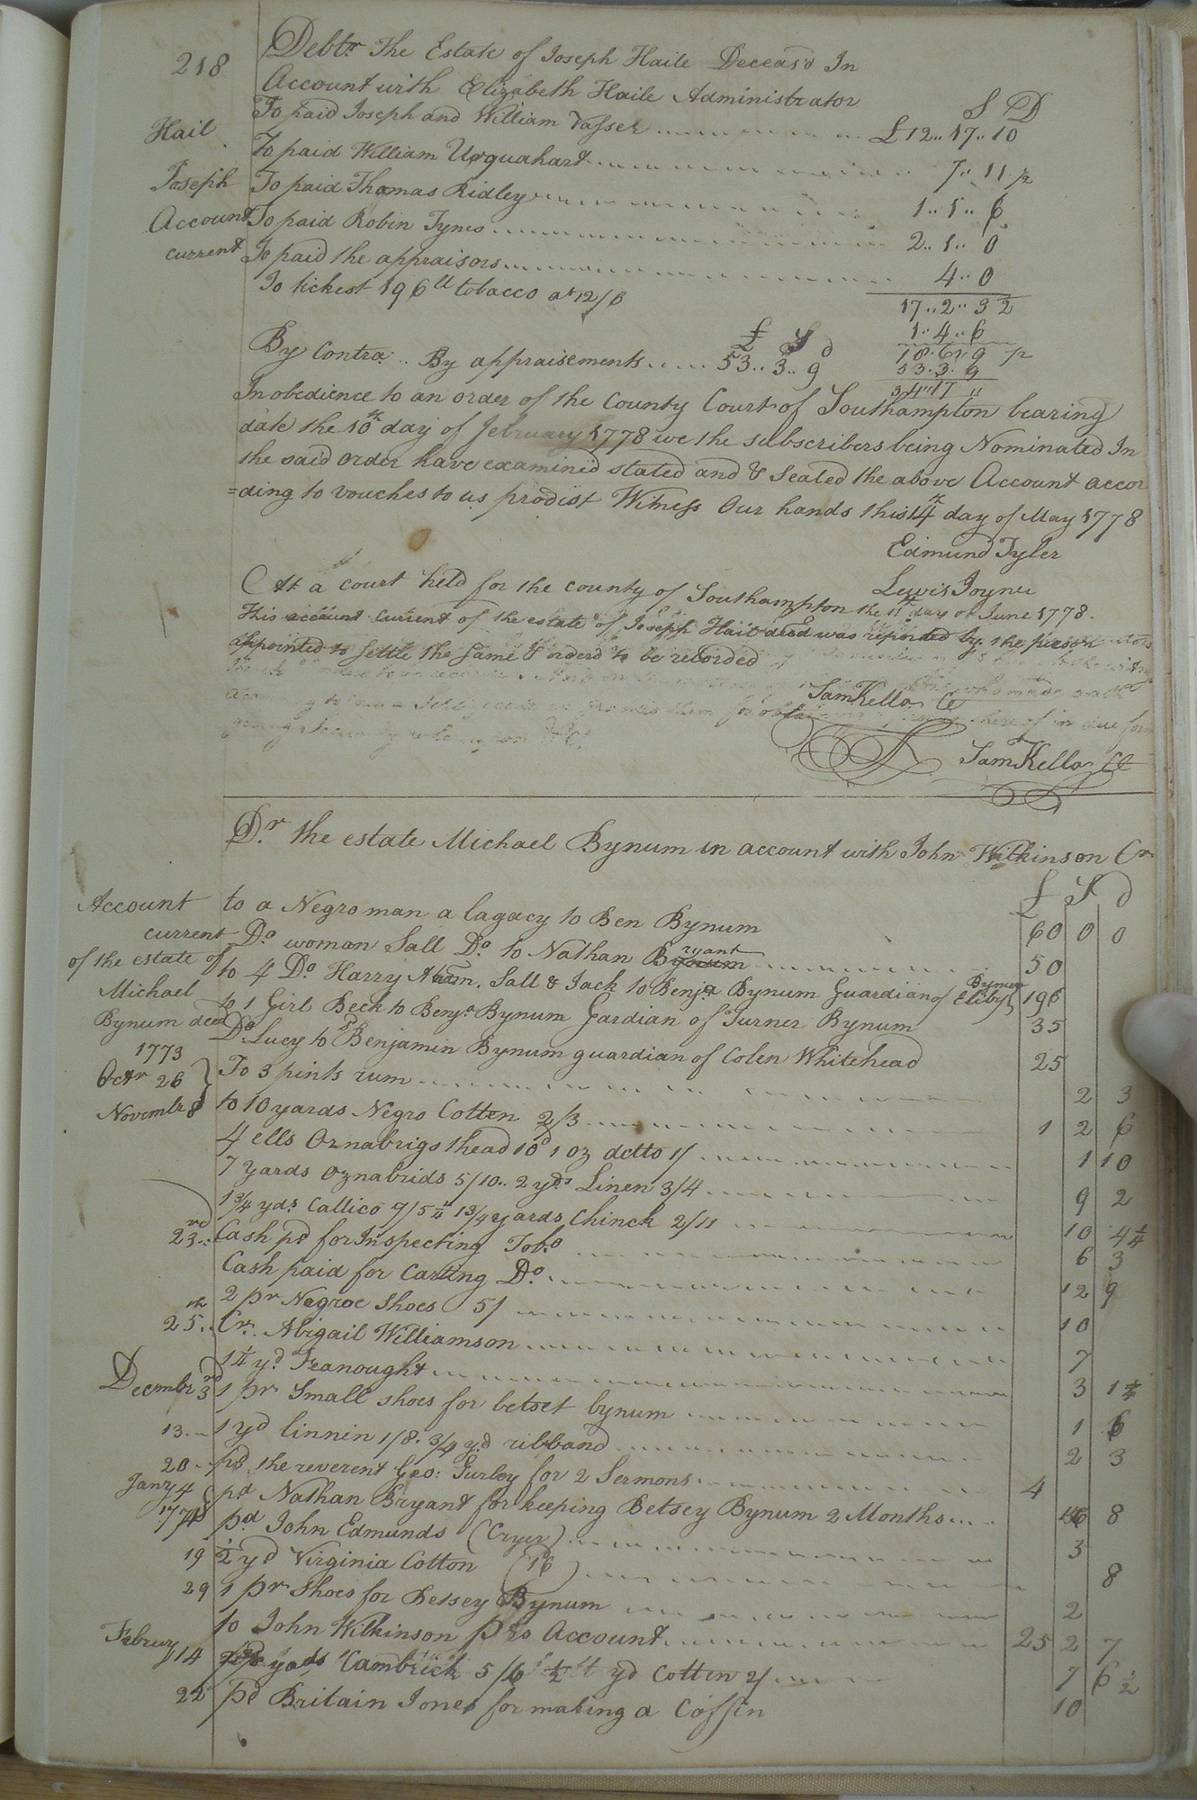 218
Debtr The Estate of Joseph Haile Deceasd In
Account with Elizabeth Haile Administrator
S D
To paid Joseph and William Vasser £12..17..10
Hail
To paid William Urquahart 7..11 p
Joseph
To paid Thomas Ridley 1..1..6
Account
To paid Robin Tynes 2..1..0
current
To paid the appraisors 4..0
To tickest 196 lb tobacco at 12/6
17..2..3 2
1..4..6
£ S d
By Contra .. By appraisements 53..3..9
18.6..9 p
53.3.9
34"17"
In obedience to an order of the County Court of Southampton bearing
date the 10th day of february 1778 we the subscribers being Nominated In
the said order have examined stated and & Sealed the above Account accor
=ding to vouches to us prodist Witness Our hands this 14th day of May 1778
Edmund Tyler
Lewis Joyner
At a court held for the county of Southampton the 11th day of June 1778.
This account current of the estate of Joseph Hail decd was reported by the person
appointed to settle the same & orderd to be recorded
Sam Kello Cl
Sam Kello Cl
Dr. the estate Michael Bynum in account with John Wilkinson Cr
£ S d
Account
to a Negro man a lagacy to Ben Bynum 60 0 0
current
Do woman Sall Do to Nathan Bynum ryant 50
of the estate of
to 4 Do Harry Abram, Sall & Jack to Benja Bynum Guardian of Elizby Bynum 196
Michael
to 1 Girl Beck to Benja Bynum Gardian of Turner Bynum 35
Bynum decd
Do Lucy to Benjamin Bynum guardian of Colen Whitehead 25
1773
Octr 26
To 3 pints rum 2 3
Novembr 8
to 10 yards Negro Cotten 2/3 1 2 6
4 ells Oznabrigs thead 10d 1 oz detto 1/ 1 10
7 yards Oznabrids 5/10.. 2 yds Linen 3/4 9 2
1 3/4 yds Callico 9/5 1 3/4 yards Chinck 2/11 10 4 1/4
23rd.. Cash pd for Inspecting Tobo 6 3
Cash paid for Carting Do 12 9
2 pr Negroe Shoes 5/ 10
25th.. Cr. Abigail Williamson 7
1 1/4 yd Feanought 3 1 1/4
Decmbr 3rd 1 pr Small shoes for betset bynum 1 6
13.. 1 yd linnin 1/8. 3/4 yd ribband 2 3
20.. pd the reverent Geo: Gurley for 2 Sermons 4
Janry 4 pd Nathan Bryant for keeping Betsey Bynum 2 Months 16 8
1774 8 pd John Edmunds (Cryer) 3
19 1/2 yd Virginia Cotton (16) 8
29 1 pr Shoes for Bessey Bynum 2
to John Wilkinson pro Account 25 2 7
Februy 14 yads Cambrick 5/6 1/2 yd Cotten 2/ 7 6 1/2
22 pd Britain Jones for making a Coffin 10